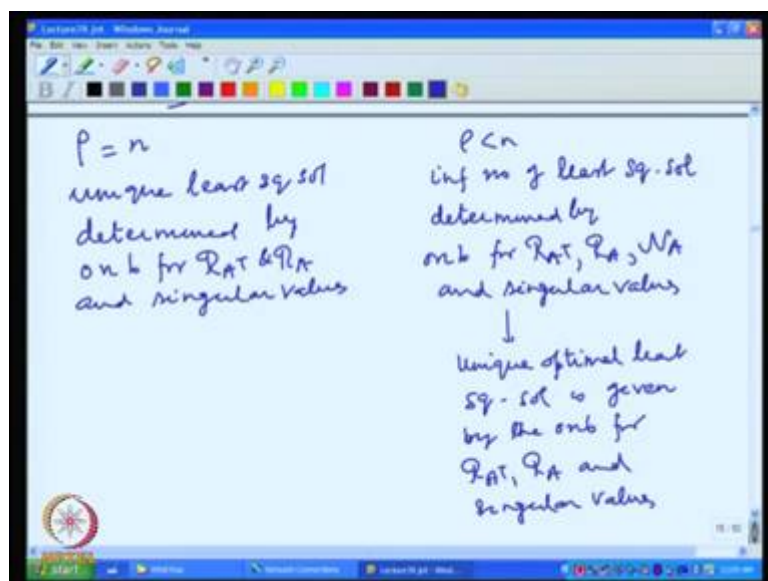 Lecture39.jnt - Windows Journal
File Edit View Insert Actions Tools Help
ρ = n
unique least sq sol
determined by
onb for R_AT & R_A
and singular values
ρ < n
inf no of least sq. sol
determined by
onb for R_AT, R_A, N_A
and singular values
↓
Unique optimal least
sq-sol is given
by the onb for
R_AT, R_A and
singular values
start